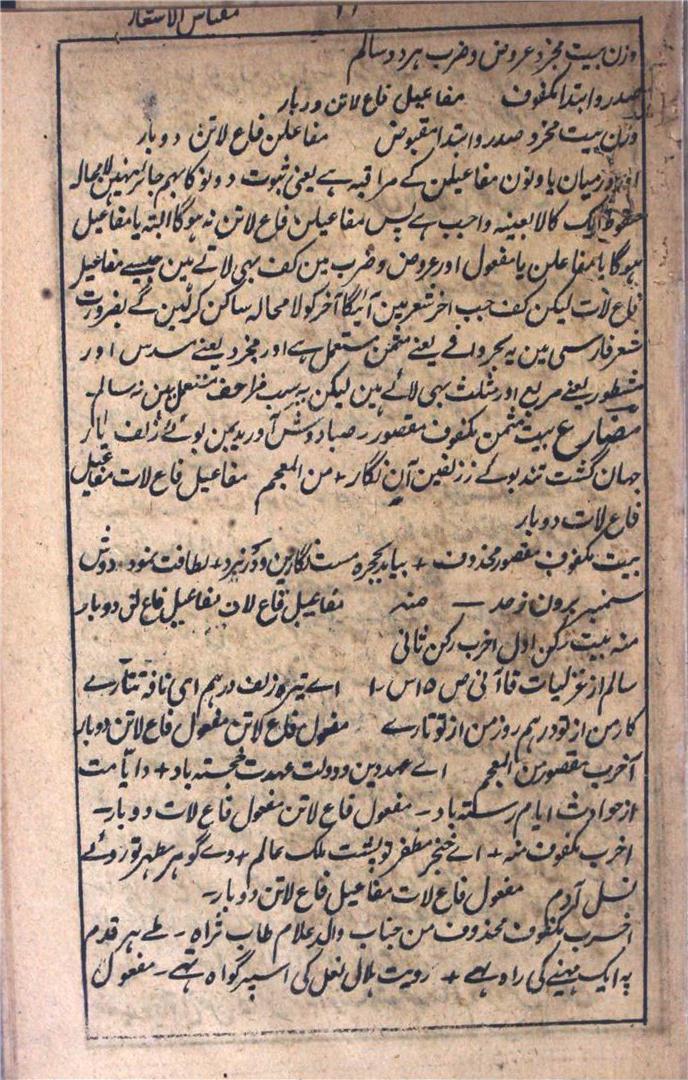 مقیاس الاشعار
۱۱
وزن بیت مجزو عروض و ضرب ہر دو سالم
صدر و ابتدا مکفوف مفاعیل فاع لاتن دو بار
وزن بیت مجزو صدر و ابتدا مقبوض مفاعلن فاع لاتن دو بار
اور درمیان یا و نون مفاعیلن کے مراقبہ ہے یعنی ثبوت دونو کا بہم جائز نہین لامحالہ
سقوط ایک کا لا بعینہ واجب ہے پس مفاعیلن فاع لاتن نہ ہوگا البتہ یا مفاعیل
ہوگا یا مفاعلن یا مفعول اور عروض و ضرب مین کف بہی لاتے ہین جیسے مفاعیل
فاع لات لیکن کف جب آخر شعر مین آئیگا آخر کو لامحالہ ساکن کرلین گے بضرورت
شعر فارسی مین یہ بحر وافے یعنے مثمن مستعمل ہے اور مجزو یعنے مسدس اور
مشطور یعنے مربع اور مثلث بہی لائے ہین لیکن یہ سب مزاحف مستعمل ہین نہ سالم۔
مضارع بیت مثمن مکفوف مقصور۔ صبا دوش آوریدہ بمن بوئے زلف یار
جہان گشت تند بوئے ززلفین آن نگار + من المعجم مفاعیل فاع لات مفاعیل
فاع لات دو بار
بیت مکفوف مقصور محذوف + بیامد بحجرہ مست نگارین و در نبرد + لطافت نمود دوش
سمنبر برون زحد — منہ مفاعیل فاع لات مفاعیل فاع لن دو بار
منہ بیت رکن اول اخرب رکن ثانی
سالم از غزلیات قاآنی ص ۱۵ س ۱۰ اے تیرہ زلف درہم ای نافۂ تتارے
کار من از تو درہم روز من از تو تارے مفعول فاع لاتن مفعول فاع لاتن دو بار
اخرب مقصور من المعجم اے عہد دین و دولت عہدت خجستہ باد + و ایامت
از حوادث ایام رستہ باد۔ مفعول فاع لاتن مفعول فاع لات دو بار۔
اخرب مکفوف منہ + اے خنجر مظفر تو پشت ملک عالم + وے گوہر مطہر تو روئے
نسل آدم مفعول فاع لات مفاعیل فاع لاتن دو بار۔
اخرب مکفوف محذوف من جناب والد علام طاب ثراہ ۔ طے ہر قدم
پہ ایک مہینے کی راہ ہے + رویت ہلال نعل کی اسپر گواہ ہے۔ مفعول